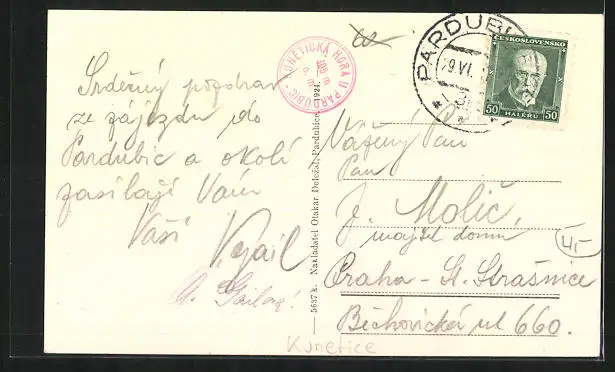 Srdečný pozdrav
ze zájezdu do
Pardubic a okolí
zasílají Vám
Vaši
KUNĚTICKÁ HORA U PARDUBIC
5637 k. Nakladatel Otakar Doležal, Pardubice, 1921.
PARDUBI
29.VI.
ČESKOSLOVENSKO
50 HALÉŘŮ 50
Vážený Pan
Pan
J. Molič,
majtel domu
Praha - St. Strašnice
Běchovická ul 660.
Kunetice